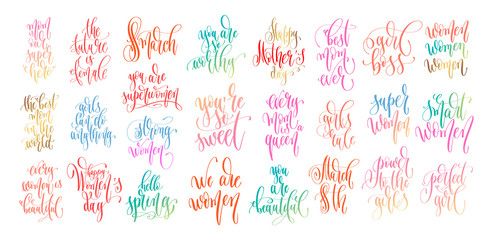 mom
you are my
super
hero
the
future
is
female
8 march
you are
so
worthy
Happy
Mother's
day
best
mom
ever
girl
boss
women
women
women
you are
superwomen
the best
mom
in the
world
girls
can do
anything
strong
women
you're
so
sweet
every
mom is a
queen
girls
rule
super
women
Smart
women
every
woman is
beautiful
happy
Women's
day
hello
spring
we are
women
you
are
beautiful
March
8th
power
to the
girls
perfect
girl